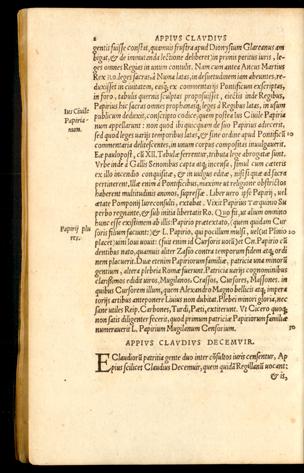 2 APPIUS CLAUDIUS
gentis fuisse constat, quamuis frustra apud Dionysium Glareanus ambigat,
& de immutanda lectione deliberet) in primis peritus iuris, leges
omnes Regias in unum contulit. Nam cum antea Ancus Martius
Rex leges sacras à Numa latas, in desuetudinem iam abeuntes, reduxisset
in ciuitatem, easq; ex commentarijs Pontificum exscriptas,
in foro, tabulis querna sculptas proposuisset, eiectis inde Regibus,
Papirius hic sacras omnes prophanasq; leges à Regibus latas, in usum
publicum deduxit, conscriptos codice, quem postea Ius Ciuile Papirianum
appellarunt: non quod ibi quicquam de suo Papirius adiecerit,
Ius Ciuile
Papirianum.
sed quod leges uarijs temporibus latas, & sine ordine apud Pontificū
commentaria delitescentes, in unum corpus compositas inuulgauerit.
Eæ paulopost, cū XII. Tabulæ ferrentur, tributa lege abrogatæ sunt.
Vrbe inde à Gallis Senonibus capta atq; incensa, simul cum cæteris
ex illo incendio conquisitæ, & in uulgus editæ, nisi si quæ ad sacra
pertinerent, Illæ enim à Pontificibus, maxime ut religione obstrictos
haberent multitudinis animos, suppressæ. Liber uero iste Papirij, uel
ætate Pomponij Iureconsulti, extabat. Vixit Papirius Tarquinio Superbo
regnante, & sub initia libertatis Ro. Quo fit, ut alium omnino
hunc esse existimem ab illis: Papirio prætextato, (quem quidam Cursoris
filium faciunt:) & L. Papirio, qui pocillum mulsi, uel (ut Plinio
placet) uini Ioui uouit: (fuit enim id Cursoris uotū) et Cn. Papirio cū
Papirij plures.
dentibus nato, quamuis aliter Zasio contra temporum fidem atq; ordinem
placuerit. Duæ etenim Papiriorum familiæ, patricia una minorū
gentium, altera plebeia Romæ fuerunt. Patricia uarijs cognominibus
clarissimos edidit uiros, Mugilanos, Crassos, Cursores, Massones. in
quibus Cursorem illum, quem Alexandro Magno bellicis atq; imperatorijs
artibus anteponere Liuius non dubitat. Plebei minori gloria, nec
sane utiles Reip. Carbones, Turdi, Pæti, extiterunt. Vt Cicero quoq;
non satis diligenter fecerit, quod primum patriciæ Papiriorum familiæ
numerauerit L. Papirium Mugilanum Censorium.
APPIUS CLAUDIUS DECEMVIR.
E Claudiorū patritia gente duo inter cōsultos iuris censentur, Appius
scilicet Claudius Decemuir, quem quidā Regillanū uocant:
& is,